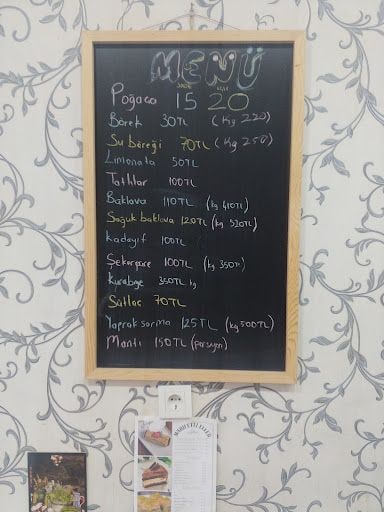 MENÜ
SADE
Poğaca 15 20
Börek 30TL (Kg 220)
Su böreği 70TL (Kg 250)
Limonata 50TL
Tatlılar 100TL
Baklava 110TL (kg 410TL)
Soğuk baklava 120TL (kg 510TL)
Kadayıf 100TL
Şekerpare 100TL (kg 350TL)
Kurabiye 350TL kg
Sütlac 70TL
Yaprak sarma 125TL (kg 500TL)
Mantı 150TL (porsiyon)